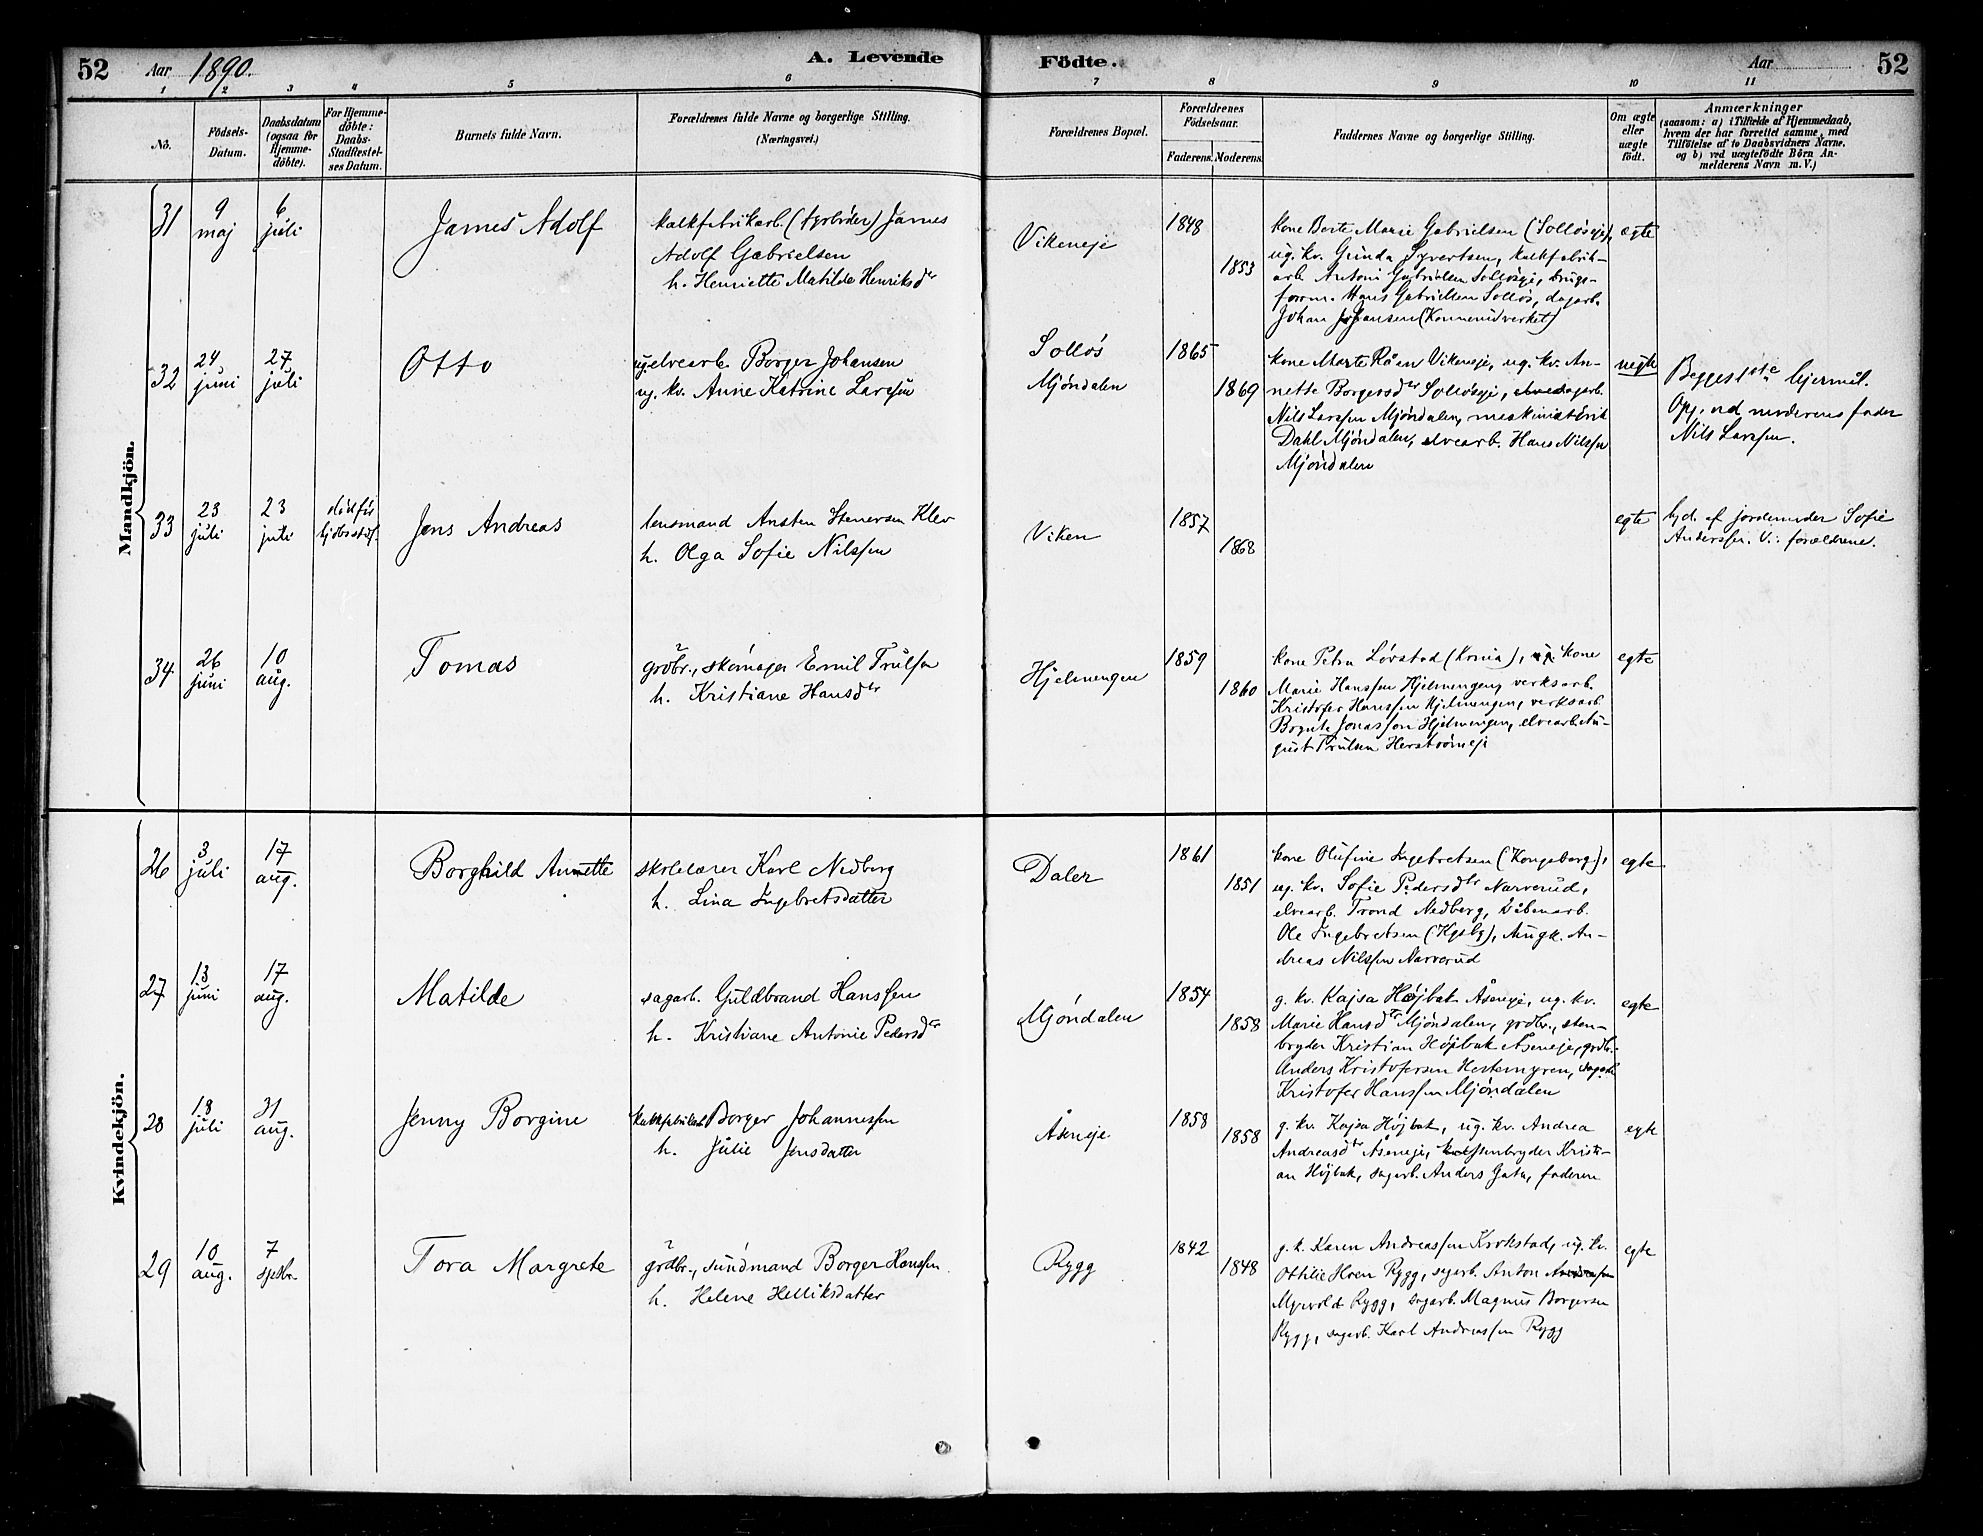 52 Aar 1890. A. Levende Födte. Aar 52
1 2 3 4 5 6 7 8 9 10 11
No.
Födsels-
Datum.
Daabsdatum
(ogsaa for
Hjemme-
döbte).
For Hjemme-
döbte:
Daabs-
Stadfæstel-
ses Datum.
Barnets fulde Navn.
Forældrenes fulde Navne og borgerlige Stilling.
(Næringsvei.)
Forældrenes Bopæl.
Forældrenes
Födselsaar.
Faderens. Moderens.
Faddernes Navne og borgerlige Stilling.
Om ægte
eller
uægte
födt.
Anmærkninger
(saasom: a) i Tilfælde af Hjemmedaab,
hvem der har forrettet samme, med
Tilföielse af to Daabsvidners Navne.
og b) ved uægtefödte Börn An-
melderens Navn m. V.)
Mandkjön.
31
9
maj
6
juli
James Adolf
kalkfabrikarb. (fyrböder) James
Adolf Gabrielsen
h. Henriette Matilde Henriksdr
Vikeneje
1848
1853
kone Berte Marie Gabrielsen (Sollöseje),
ug. kv. Gunda Syvertsen, kalkfabrik-
arb. Antoni Gabrielsen Sollöseje, brugs-
form. Hans Gabrielsen Sollös, dagarb.
Johan Johansen
egte
32
24
juni
27
juli
Otto
ug. elvearb. Borger Johansen
ug. kv. Anne Katrine Larssen
Sollös
Mjöndalen
1865
1869
kone Marte Råen Vikeneje, ug. kv. An-
nette Borgersdr Sollöseje, dagarb.
Nils Larssen Mjöndalen, maskinist Erik
Dahl Mjöndalen, elvearb. Hans Nilssen
Mjöndalen
uegte
Begges 1ste lejermål.
Opg. ved moderens fader
Nils Larssen.
33
23
juli
23
juli
död för
Jens Andreas
lensmand Ansten Stenersen Klev
h. Olga Sofie Nilssen
Viken
1857
1868
egte
hjd. af jordemoder Sofie
Anderssen. V.: forældrene.
34
26
juni
10
aug.
Tomas
grdbr., skomager Emil Trulsen
h. Kristiane Hansdr
Hjelmengen
1859
1860
kone Petra Lövstad (Krania), kone
Marie Hanssen Hjelmengen, verksarb.
Kristofer Hanssen Hjelmengen, verksarb.
Jonassen Hjelmengen, elvearb. Au-
gust Trulsen Herströmeje
egte
Kvindekjön.
26
3
juli
17
aug.
Borghild Annette
skolelærer Karl Nedberg
h. Lina Ingebretsdatter
Daler
1861
1851
kone Olufine Ingebretsen (Kongsberg),
ug. kv. Sofie Pedersdr Narverud,
elvearb. Trond Nedberg, våbenarb.
Ole Ingebretsen (Kgsbg), ungk. An-
dreas Nilssen Narverud
egte
27
13
juni
17
aug.
Matilde
sagarb. Guldbrand Hanssen
h. Kristiane Antonie Pedersdr
Mjöndalen
1854
1858
g. kv. Kajsa Höjbak Åseneje, ug. kv.
Marie Hansdr Mjöndalen, grdbr., sten-
bryder Kristian Höjbak Åseneje, grdbr.
Anders Kristofersen Hestemyren, sagarb.
Kristofer Hanssen Mjöndalen
egte
28
18
juli
31
aug.
Jenny Borgine
kalkfabrikarb. Borger Johannessen
h. Julie Jensdatter
Åseneje
1858
1858
g. kv. Kajsa Höjbak, ug. kv. Andrea
Andreasdr Åseneje, stenbryder Kristi-
an Höjbak, sagarb. Anders Gata, faderen
egte
29
10
aug.
7
septbr.
Tora Margrete
grdbr., sundmand Borger Hanssen
h. Helene Helliksdatter
Rygg
1842
1848
g. k. Karen Andreassen Krokstad, ug. kv.
Ottilie Hven Rygg, sagarb. Anton
Myrvold Rygg, sagarb. Magnus Borgersen
Rygg, sagarb. Karl Andreassen Rygg
egte